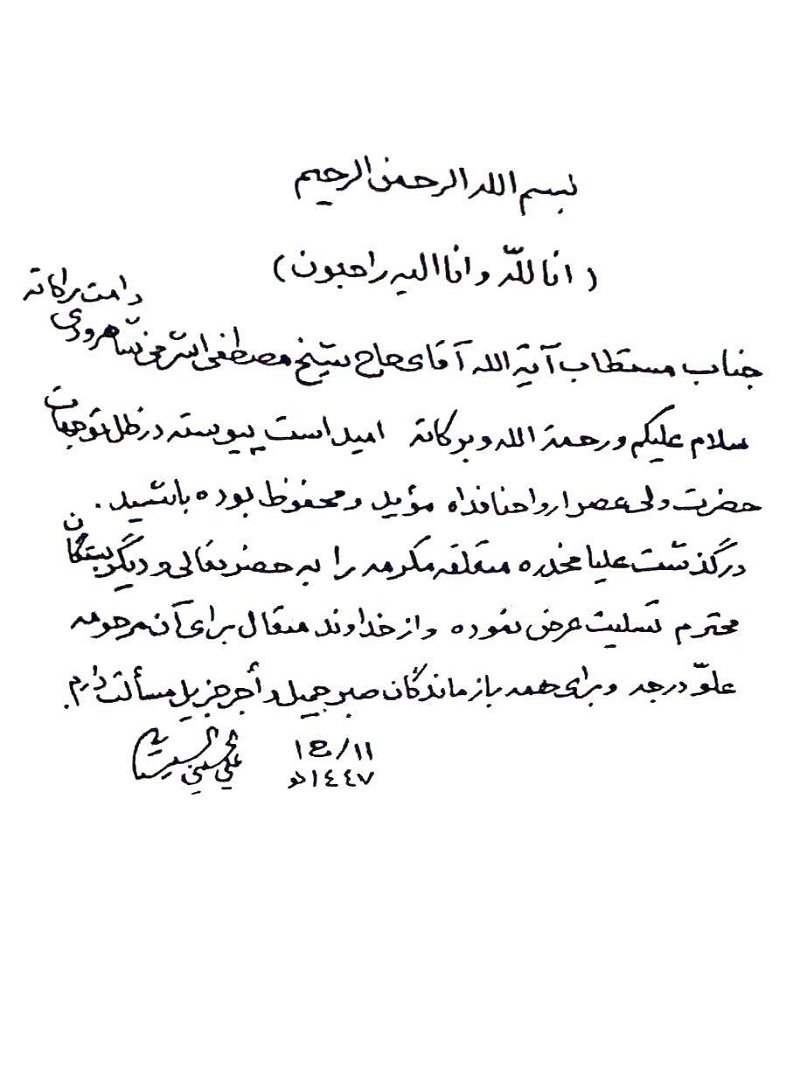 بسم الله الرحمن الرحیم
(انا للّه و انا الیه راجعون)
جناب مستطاب آیة الله آقای حاج شیخ مصطفی اشرفی شاهرودی دامت برکاته
سلام علیکم و رحمة الله و برکاته امید است پیوسته در ظل توجهات
حضرت ولی عصر ارواحنا فداه مؤید و محفوظ بوده باشید.
درگذشت علیا مخدره متعلقه مکرمه را به حضرتعالی و دیگر بستگان
محترم تسلیت عرض نموده و از خداوند متعال برای آن مرحومه
علوّ درجه و برای همه بازماندگان صبر جمیل و أجر جزیل مسألت دارم.
١١/ج١
١٤٤٧هـ
علي الحسيني السيستاني